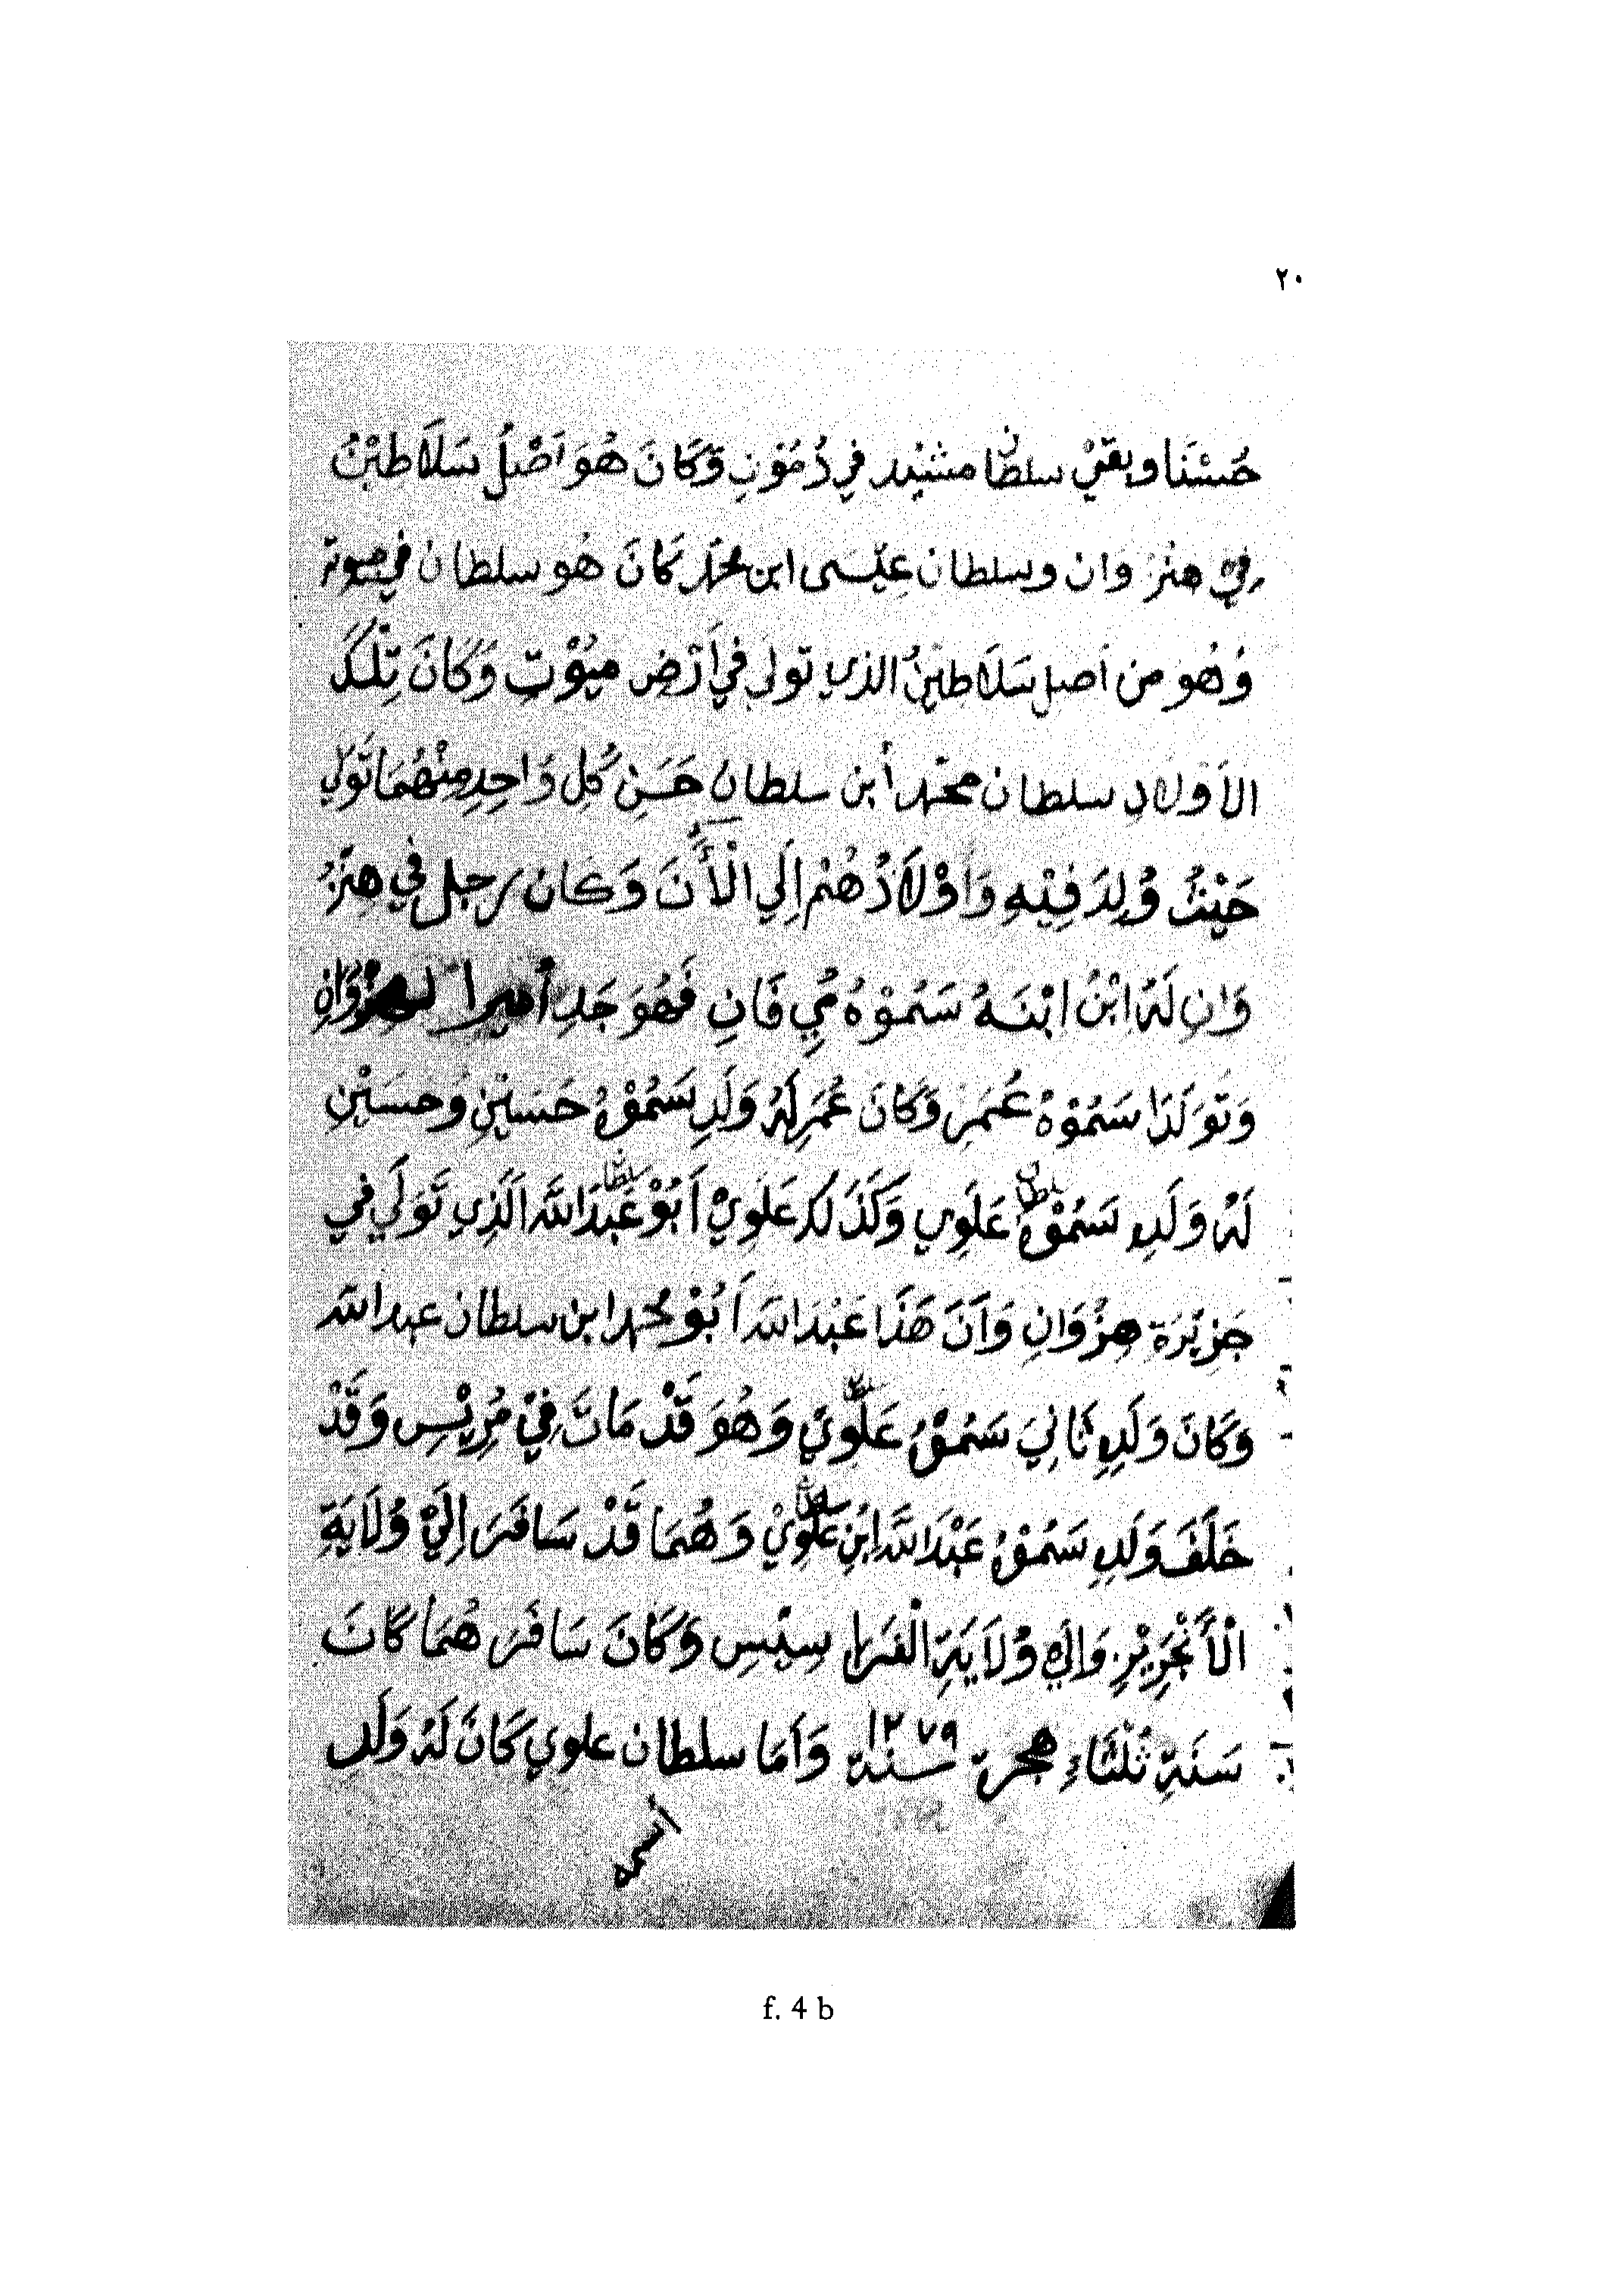 ٢٠
حُسْنَا وبقيْ سلطان مشنْيد في دُمُوْنِ وَكَانَ هُوَ اَصْلُ سَلَاطِيْنُ
فِيْ هِنْزُوَان وسلطان عِيْسَى ابن محمّد كَانَ هُو سلطان في ميوتة
وَهُو من اَصل سَلَاطِيْنُ الذي تولي في اَرْض مَيُوْتِ وَكَانَ تِلْكَ
الاَوْلادِ سلطان محمّد اُبن سلطان حَسَنِ كُلِ وَاحِدِ مِنْهُمَا تَوَلي
حَيْثُ وُلِدَ فِيْهِ وَاَوْلَادُهُمْ اِلَي الْأَنَ وَكَان رجل في هِنْزُ
وَانِ لَهُ ابْنُ ابْنَهُ سَمُوْهُ مِي فَانِ فَهُوَ جَدِ اُميرا لهنزوَانِ
وَتَوَلَدَا سَمُوْهُ عُمَرِ وَكَانَ عُمَرِ لَهُ وَلَدِ سَمُوْهُ حَسَيْنِ وَحسَيْنِ
لَهُ وَلَدِ سَمُوْهُ سلطان عَلَوِي وَكَذَلكَ عَلَوِيْ اَبُوْ سلطان عَبْدَاللَّه اَلَذِي تَوَلَي في
جَزِيْرَة هِنْزُوَانِ وَاَنَ هَذَا عَبْدَالله اَبُوْ محمد ابن سلطان عبدالله
وَكَانَ وَلَدِ ثَانِيَ سَمُوْهُ عَلَوِيْ وَهُوَ قَدْ مَاتَ فِيْ مُرِيْسِ وَقَدْ
خَلَفَ وَلَدِ سَمُوْهُ عَبْدَاللَّه ابْنِ سلطان عَلَوِيْ وَهُمَا قَدْ سَافَرَ اِلَيْ وُلَايَةِ
الْأَنْجَرِيْزِ وَاليْ وُلَايَةِ الْفَرَا سِيْسِ وَكَانَ سَافَرَ هُمَا كَانَ
سَنَةِ ثَلْثَاءِ هجرة سنة ١٢٧٩ وَاَمَا سلطان علوي كَانَ لَهُ وَلَدِ
اسمه
f. 4 b